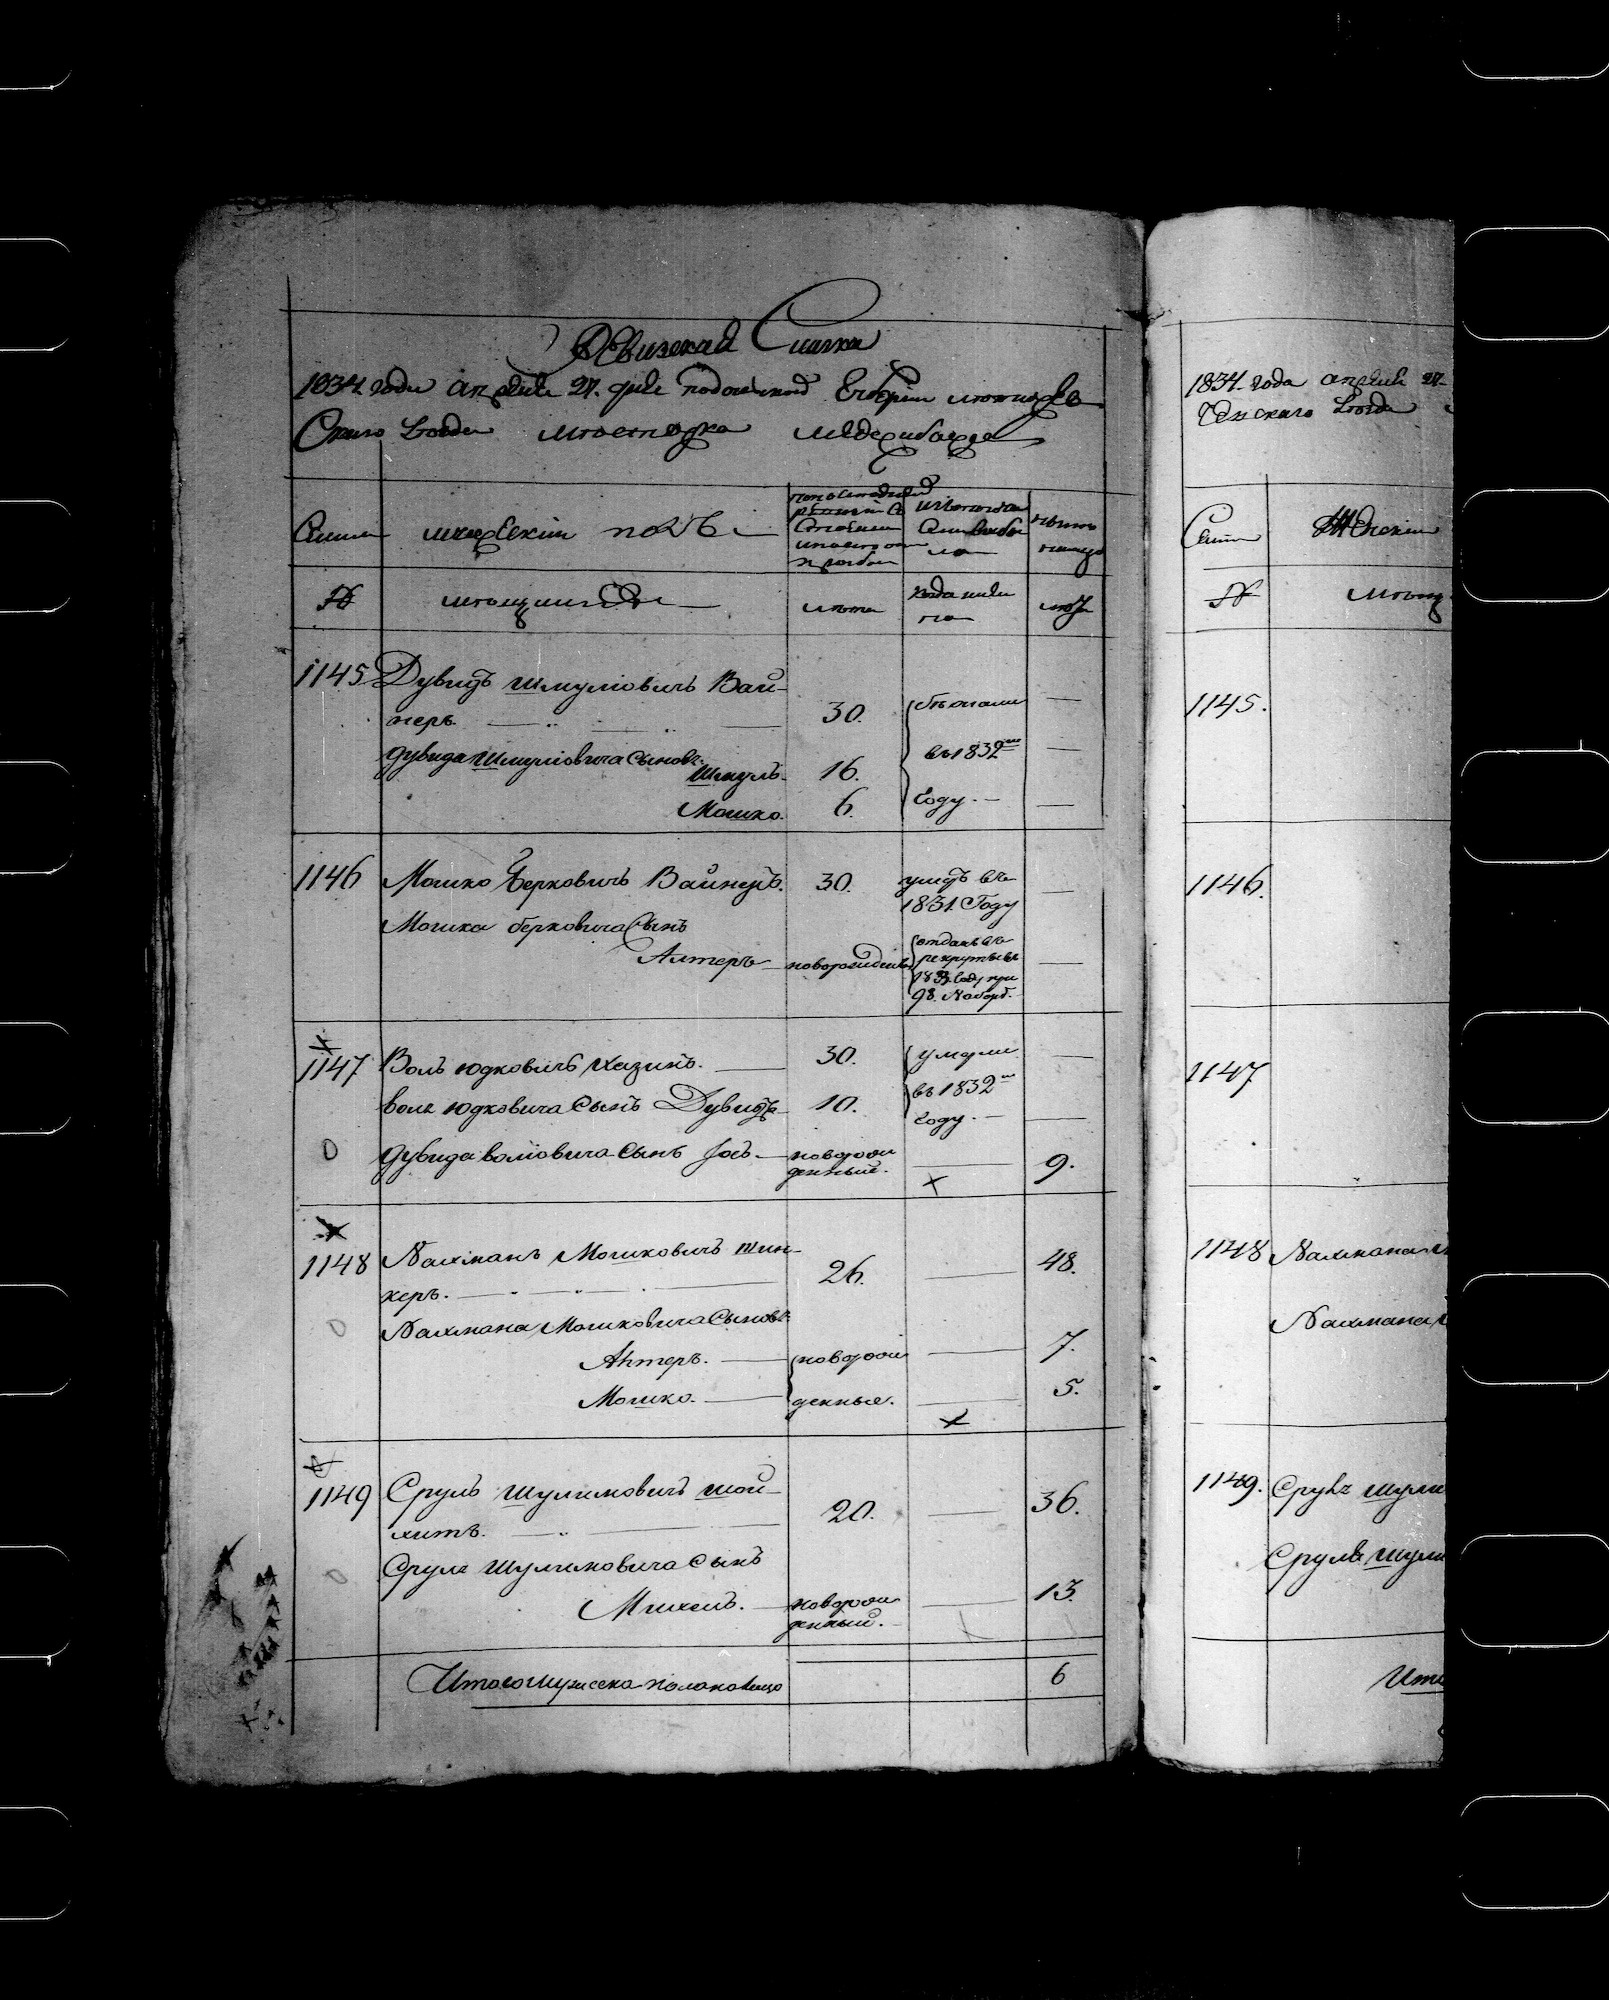 Ревизская Сказка
1834. года апреля 27. дня подольской Губернии литинскаго
Скаго уезда местечка меджибожа
Семьи
мужеский полъ
по последней
ревизіи
Состояло
и после оной
прибыло
изъ того числа
выбыло
ныне
налицо
№
мещане
лета
когда имен
но
лета
1145 Дувидъ Шмуліовичъ Вай-
неръ. 30. бежали —
Дувида Шмуліовича Сыновья
Шмуль- 16. въ 1832м —
Мошко. 6. Году. — —
1146 Мошко Берковичъ Вайнеръ. 30. умеръ въ —
1831. Году
Мошка берковича Сынъ
Алтеръ новорожденъ отданъ въ —
рекруты въ
1833 Году при
98. Наборе.
1147 Воль юдковичъ Хазинъ. 30. умерли —
воля юдковича Сынъ Дувидъ 10. въ 1832м
Году. — —
Дувида воліовича Сынъ Іосъ — новорож
денный. — 9.
1148 Нахманъ Мошковичъ шин-
керъ. 26. — 48.
Нахмана Мошковича Сыновья
Алтеръ. — новорож — 7.
Мошко. — денные. — 5.
1149 Сруль Шулимовичъ шой-
хитъ. 20. — 36.
Сруля Шулимовича Сынъ
Михель. — новорож
денный. — 13.
Итого мужеска пола налицо 6
1834. года апреля 27.
уезда
Семьи
Женскій
№
мещ
1145.
1146.
1147
1148 Нахмана
Нахмана
1149. Сруля шули
Сруля шули
Ито